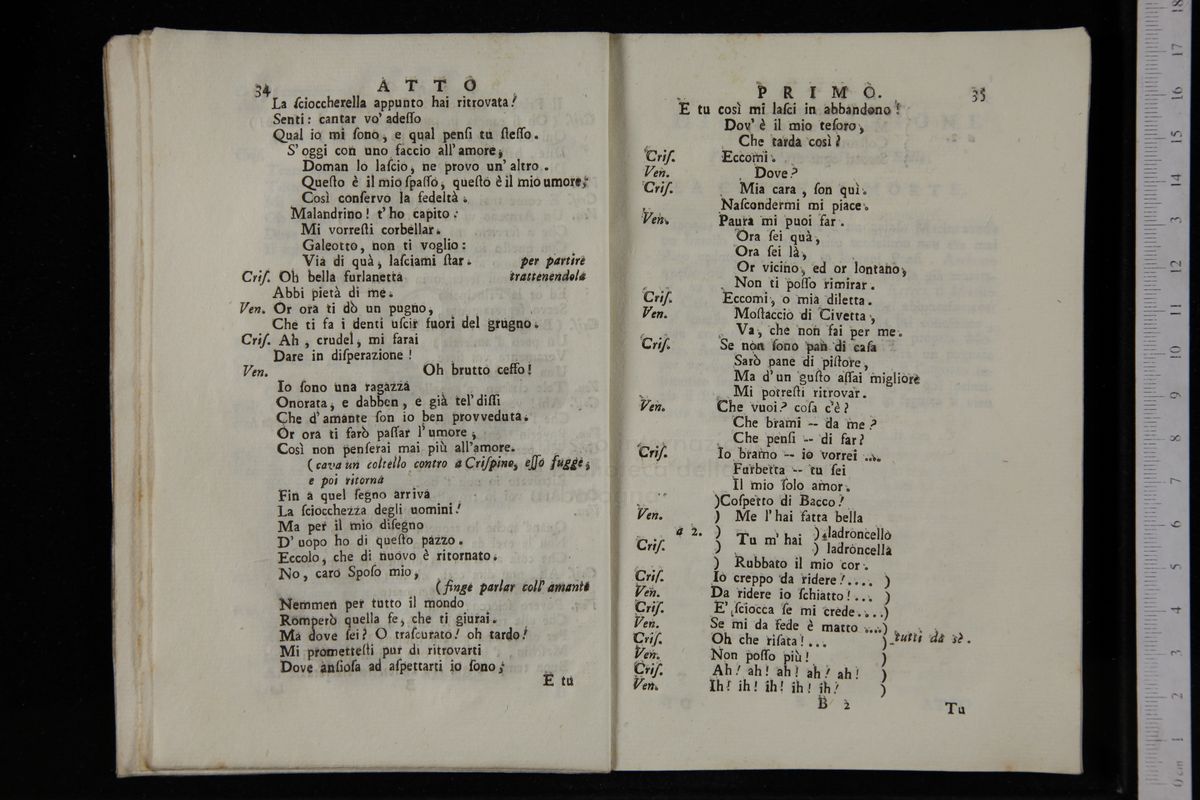 34 ATTO
La ſcioccherella appunto hai ritrovata!
Senti: cantar vo' adeſſo
Qual io mi ſono, e qual penſi tu ſteſſo.
S' oggi con uno faccio all'amore,
Doman lo laſcio, ne provo un' altro.
Queſto è il mio ſpaſſo, queſto è il mio umore;
Così conſervo la fedeltà.
Malandrino! t' ho capito:
Mi vorreſti corbellar.
Galeotto, non ti voglio:
Via di quà, laſciami ſtar. per partire
Criſ. Oh bella furlanetta trattenendola
Abbi pietà di me.
Ven. Or ora ti dò un pugno,
Che ti fa i denti uſcir fuori del grugno.
Criſ. Ah, crudel, mi farai
Dare in diſperazione!
Ven. Oh brutto ceffo!
Io ſono una ragazza
Onorata, e dabben, e già tel' diſſi
Che d' amante ſon io ben provveduta.
Or ora ti farò paſſar l' umore,
Così non penſerai mai più all'amore.
(cava un coltello contro a Criſpino, eſſo fugge,
e poi ritorna
Fin a quel ſegno arriva
La ſciocchezza degli uomini!
Ma per il mio diſegno
D' uopo ho di queſto pazzo.
Eccolo, che di nuovo è ritornato.
No, caro Spoſo mio,
(finge parlar coll' amante
Nemmen per tutto il mondo
Romperò quella fe, che ti giurai.
Ma dove ſei? O traſcurato! oh tardo!
Mi promettefti pur di ritrovarti
Dove anſioſa ad aſpettarti io ſono;
E tu
PRIMO. 35
E tu così mi laſci in abbandono?
Dov' è il mio teſoro,
Che tarda così?
Criſ. Eccomi.
Ven. Dove?
Criſ. Mia cara, ſon quì.
Naſcondermi mi piace.
Ven. Paura mi puoi far.
Ora ſei quà,
Ora ſei là,
Or vicino, ed or lontano,
Non ti poſſo rimirar.
Criſ. Eccomi, o mia diletta.
Ven. Moſtaccio di Civetta,
Va, che non fai per me.
Criſ. Se non ſono pan di caſa
Sarò pane di piſtore,
Ma d' un guſto aſſai migliore
Mi potreſti ritrovar.
Ven. Che vuoi? coſa c'è?
Che brami -- da me?
Che penſi -- di far?
Criſ. Io bramo -- io vorrei ...
Furbetta -- tu ſei
Il mio ſolo amor.
)Coſpetto di Bacco!
Ven. ) Me l' hai fatta bella
a 2. ) Tu m' hai ) ladroncello
Criſ. ) ) ladroncella
) Rubbato il mio cor.
Criſ. Io creppo da ridere!.... )
Ven. Da ridere io ſchiatto!... )
Criſ. E' ſciocca ſe mi crede....)
Ven. Se mi da fede è matto ....)
Criſ. Oh che riſata! ... ) tutti da sè.
Ven. Non poſſo più! )
Criſ. Ah! ah! ah! ah! ah! )
Ven. Ih! ih! ih! ih! ih! )
B 2 Tu